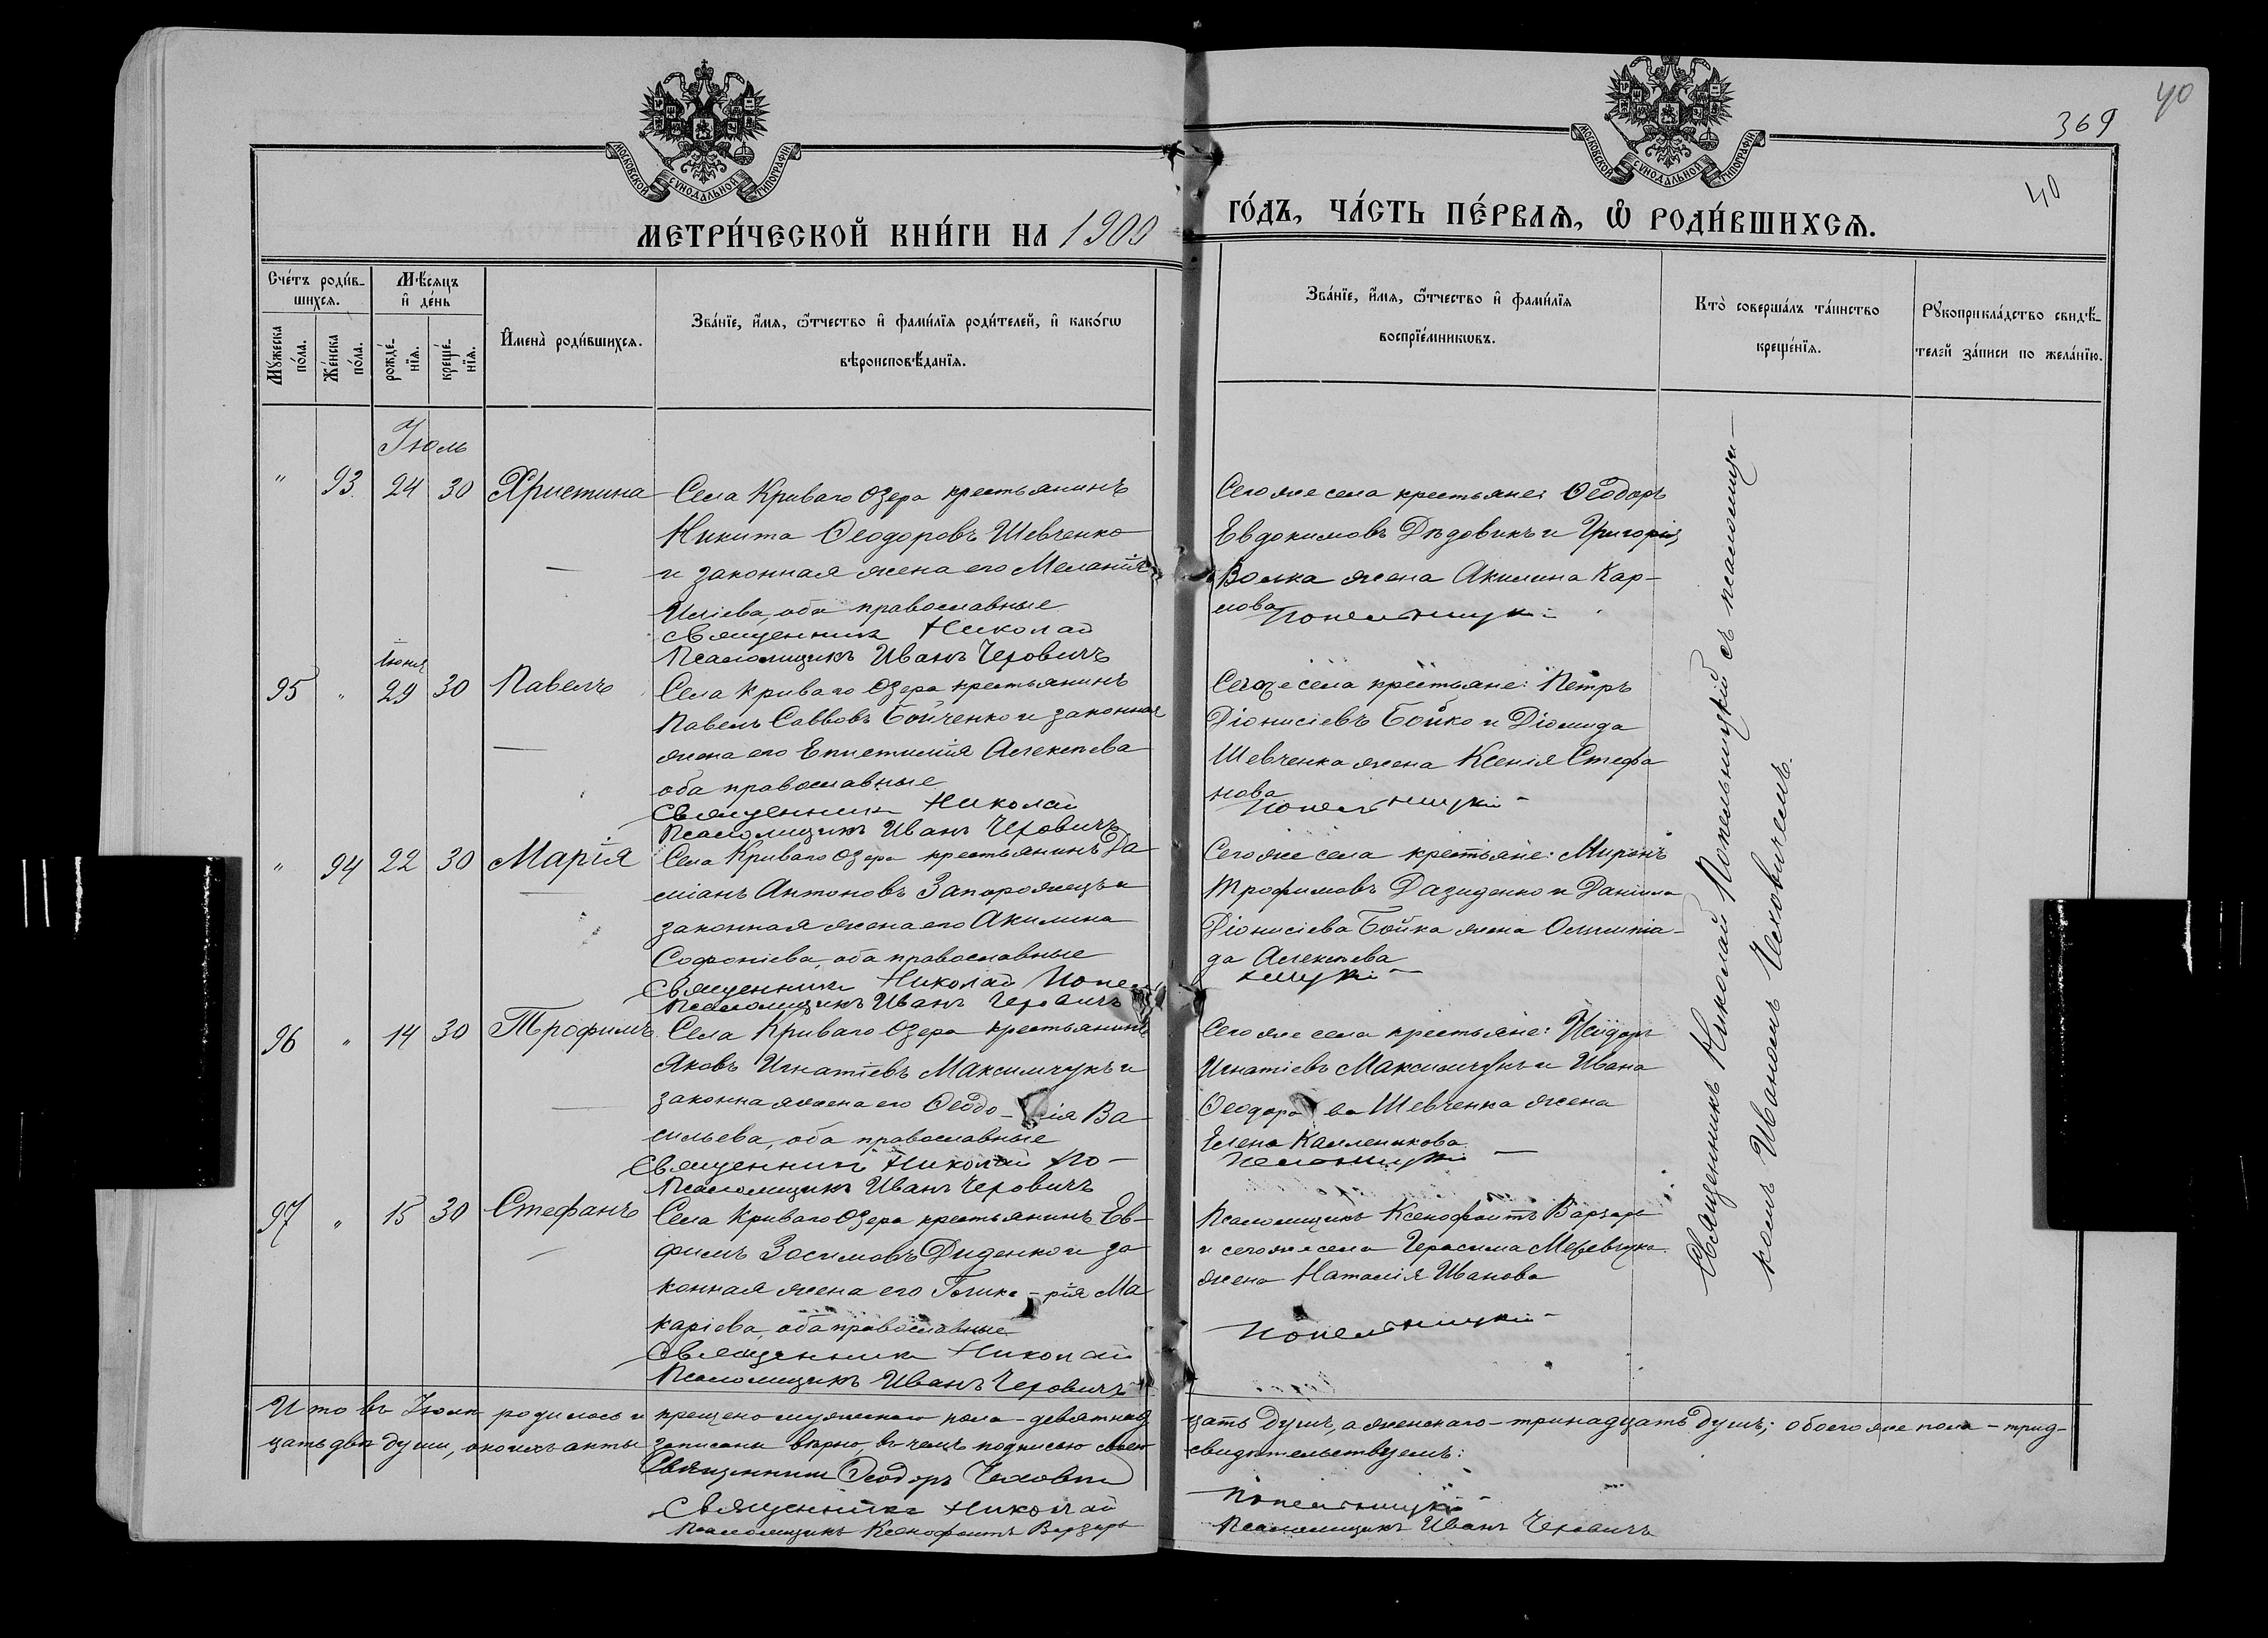 40
369
40
МОСКОВСКОЙ СѴНОДАЛЬНОЙ ТИПОГРАФІИ
МОСКОВСКОЙ СѴНОДАЛЬНОЙ ТИПОГРАФІИ
МЕТРИ́ЧЕСКОЙ КНИ́ГИ НА 1900 ГО́ДЪ, ЧА́СТЬ ПЕ́РВАѦ, Ѡ҆ РОДИ́ВШИХСѦ.
Сче́тъ роди́в-
шихсѧ.
Мꙋ́жеска по́ла.
Же́нска по́ла.
Мѣ́сѧцъ
и҆ де́нь
рожде́-нїѧ.
креще́-нїѧ.
И҆мена̀ роди́вшихсѧ.
Зва́нїе, и҆́мѧ, ѻ҆́тчество и҆ фами́лїѧ роди́телей, и҆ како́гѡ
вѣроисповѣ́данїѧ.
Зва́нїе, и҆́мѧ, ѻ҆́тчество и҆ фами́лїѧ
воспрїе́мникѡвъ.
Кто̀ соверша́лъ та́инство
креще́нїѧ.
Рꙋкоприкла́дство свидѣ́-
телей за́писи по жела́нїю.
Іюль
" 93 24 30 Христина
Села Криваго Озера крестьянинъ
Никита Ѳеодоровъ Шевченко
и законная жена его Меланія
Иліева, оба православные
Священник Николай
Псаломщикъ Иванъ Чехович
Сего же села крестьяне: Ѳеодоръ
Евдокимовъ Дѣдовикъ и Григорія
Волка жена Акилина Кар-
пова
Попельницкій
Іюня
95 " 29 30 Павелъ
Села Криваго Озера крестьянинъ
Павелъ Саввовъ Бойченко и законная
жена его Епистимія Алексѣева
оба православные
Священник Николай
Псаломщикъ Иванъ Чехович
Сего же села крестьяне: Петръ
Діонисіевъ Бойко и Діомида
Шевченка жена Ксенія Стефа
нова
Попельницкій
" 94 22 30 Марія
Села Криваго Озера крестьянинъ Да
міанъ Антоновъ Запорожецъ и
законная жена его Акилина
Софоніева, оба православные
Священник Николай Попель
Псаломщикъ Иванъ Чехович
Сего же села крестьяне: Миронъ
Трофимовъ Давиденко и Даніила
Діонисіева Бойка жена Олимпіа-
да Алексѣева
ницкій
96 " 14 30 Трофимъ
Села Криваго Озера крестьянинъ
Яковъ Игнатіевъ Максимчукъ и
законная жена его Ѳеодо- сія Ва-
сильева, оба православные
Священник Николай По-
Псаломщикъ Иванъ Чехович
Сего же села крестьяне: Исидоръ
Игнатіевъ Максимчукъ и Ивана
Ѳеодоро ва Шевченка жена
Елена Каллиникова
пельницкій
97 " 15 30 Стефанъ
Села Криваго Озера крестьянинъ Ев-
фимъ Зосимовъ Диденко и за
конная жена его Глике-рія Ма
каріева, оба православные
Священник Николай
Псаломщикъ Иванъ Чехович
Псаломщикъ Ксенофонтъ Варзарь
и сего же села Герасима
жена Наталія Иванова
Попельницкій
Священникъ Николай Попельницкій съ псаломщи-
комъ Иваномъ Чеховичемъ.
Итого въ Іюлѣ родилось и крещено мужескаго пола - девятнад цать душъ, а женскаго - тринадцать душъ; обоего же пола - трид-
цать двѣ души, о коихъ акты записаны вѣрно, въ чемъ подписью своею свидѣтельствуемъ:
Священник Ѳеодоръ Чехович
Священник Николай Попельницкій
Псаломщикъ Ксенофонтъ Варзарь Псаломщикъ Иванъ Чехович